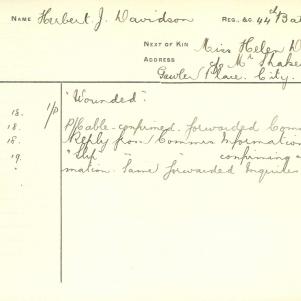 NAME Herbert J. Davidson REG. & CO. 44th Ba
NEXT OF KIN Miss Helen D
ADDRESS c/ Mr Shake
Gawler Place. City.
1/P "Wounded".
18.
18. P/Cable confirmed. forwarded Com
18. Reply from Commis Information
19. "Slip" " confirming
mation. Same forwarded Inquiries